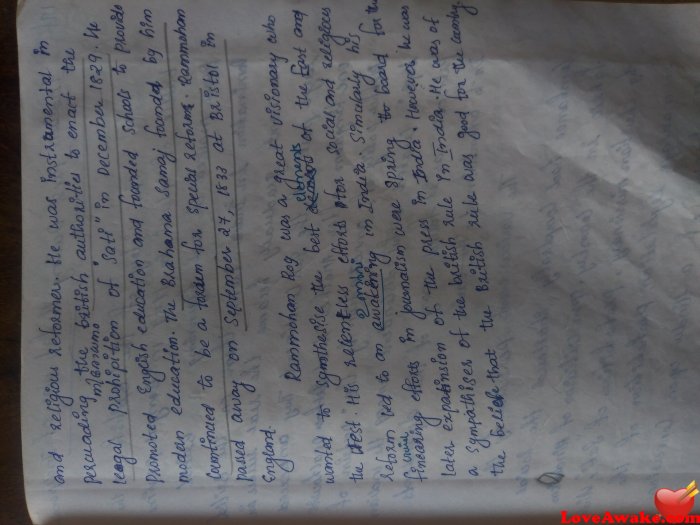 and religious reformer. He was instrumental in
persuading the british authorities to enact the
legal prohipition of "Sati" in December 1829. He
promoted English education and founded schools to provide
modern education. The Brahama Samaj founded by him
continued to be a for special reforms. Rammohan
passed away on September 27, 1833 at Bristol in
England.
Rammohan Roy was a great visionary who
wanted to synthesise the best elements of the East and
the West. His relentless efforts for social and religious
reform led to an awakening in India. Similarly his
efforts in journalism were spring to board for the
later expansion of the press in India. However he was
a sympathiser of the british rule in India. He was of
the beliefe that the British rule was good for the country.
LoveAwake.com